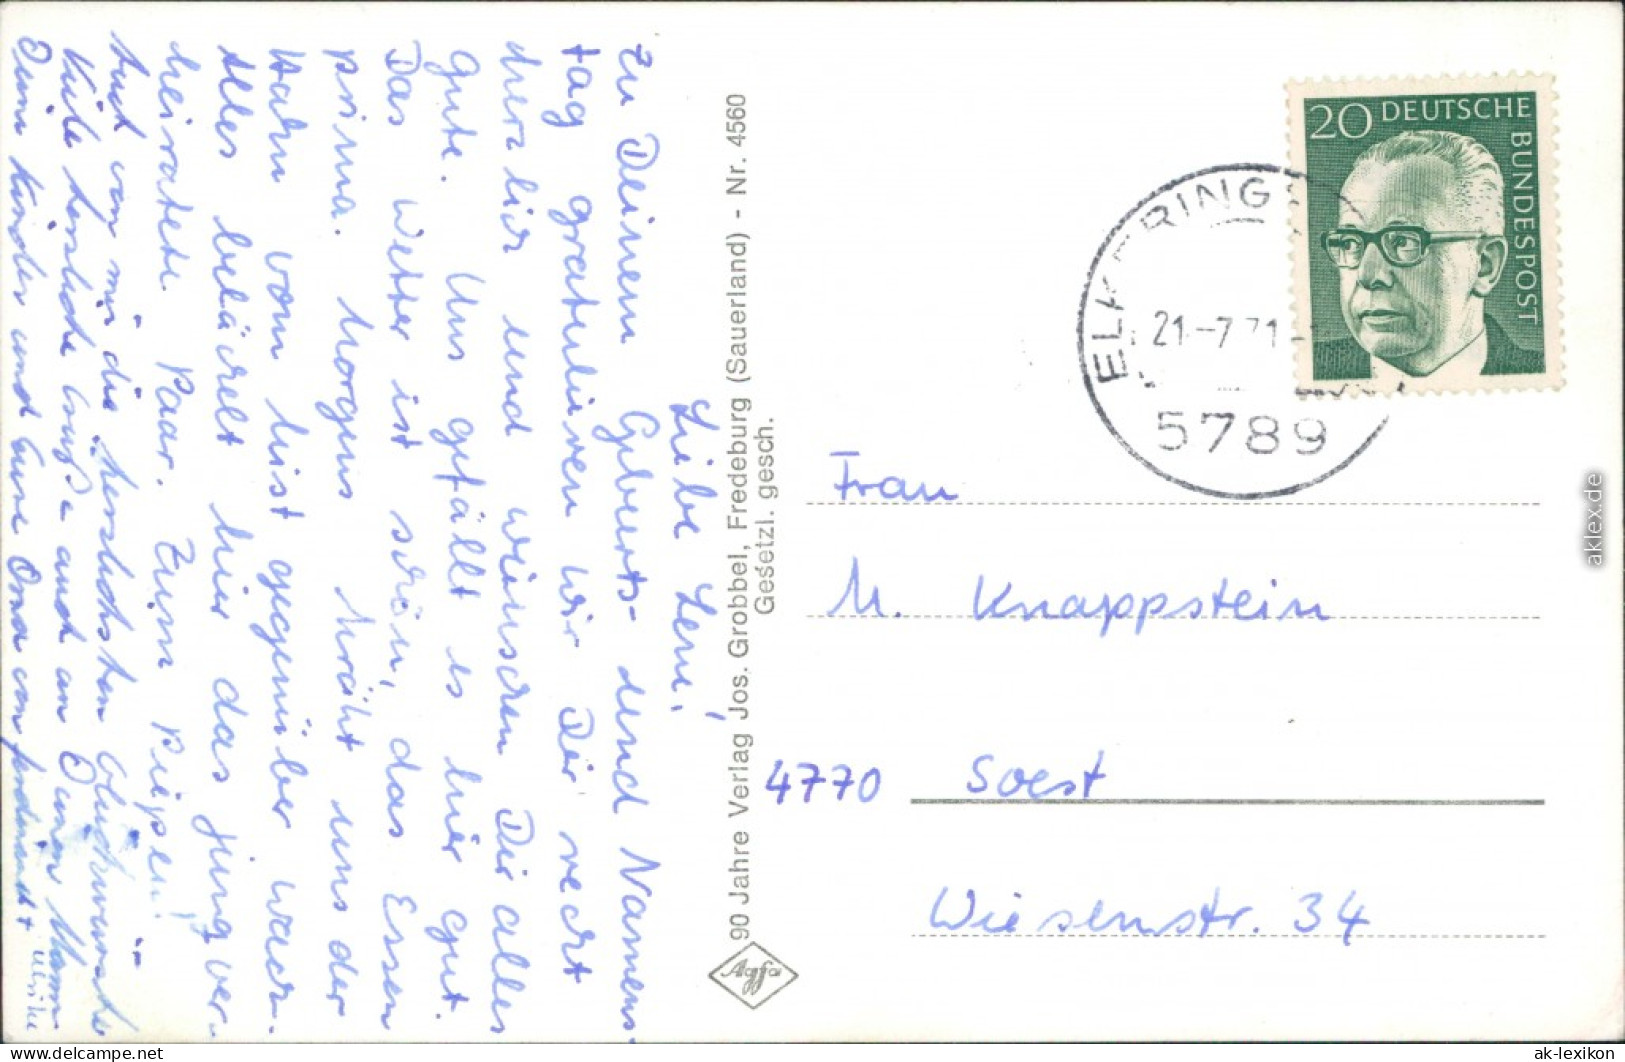 Liebe Leni!
Zu Deinem Geburts- und Namens-
tag gratulieren wir Dir recht
herzlich und wünschen Dir alles
gute. Uns gefällt es hier gut.
Das Wetter ist schön, das Essen
prima. Morgens kräht uns der
Hahn vom Mist gegenüber wach.
Alles belächelt hier das jung ver-
heiratete Paar. Zum Piepen!
Auch von mir die herzlichsten Glückwünsche
Viele herzliche Grüße auch an Deinen Mann
Deine Kinder und Eure Oma von
Ulrike
90 Jahre Verlag Jos. Grobbel, Fredeburg (Sauerland) - Nr. 4560
Gesetzl. gesch.
Agfa
20 DEUTSCHE
BUNDESPOST
21.-7.71
5789
Frau
M. Knappstein
4770 Soest
Wiesenstr. 34
aklex.de
www.delcampe.net
ak-lexikon